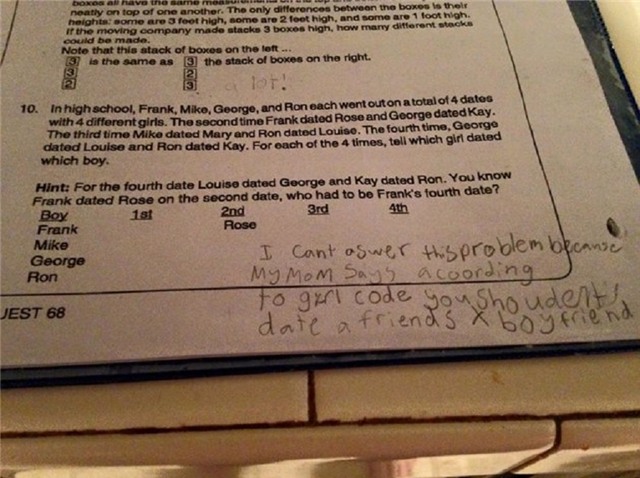 boxes all have the same measurements on the top and
neatly on top of one another. The only differences between the boxes is their
heights: some are 3 feet high, some are 2 feet high, and some are 1 foot high.
If the moving company made stacks 3 boxes high, how many different stacks
could be made.
Note that this stack of boxes on the left ...
3 is the same as 3 the stack of boxes on the right.
3 2
2 3 a lot!
10. In high school, Frank, Mike, George, and Ron each went out on a total of 4 dates
with 4 different girls. The second time Frank dated Rose and George dated Kay.
The third time Mike dated Mary and Ron dated Louise. The fourth time, George
dated Louise and Ron dated Kay. For each of the 4 times, tell which girl dated
which boy.
Hint: For the fourth date Louise dated George and Kay dated Ron. You know
Frank dated Rose on the second date, who had to be Frank's fourth date?
Boy 1st 2nd 3rd 4th
Frank Rose
Mike
George
Ron
I cant aswer this problem because
My Mom Says acoording
to girl code you shoudent
date a friends X boyfriend
JEST 68